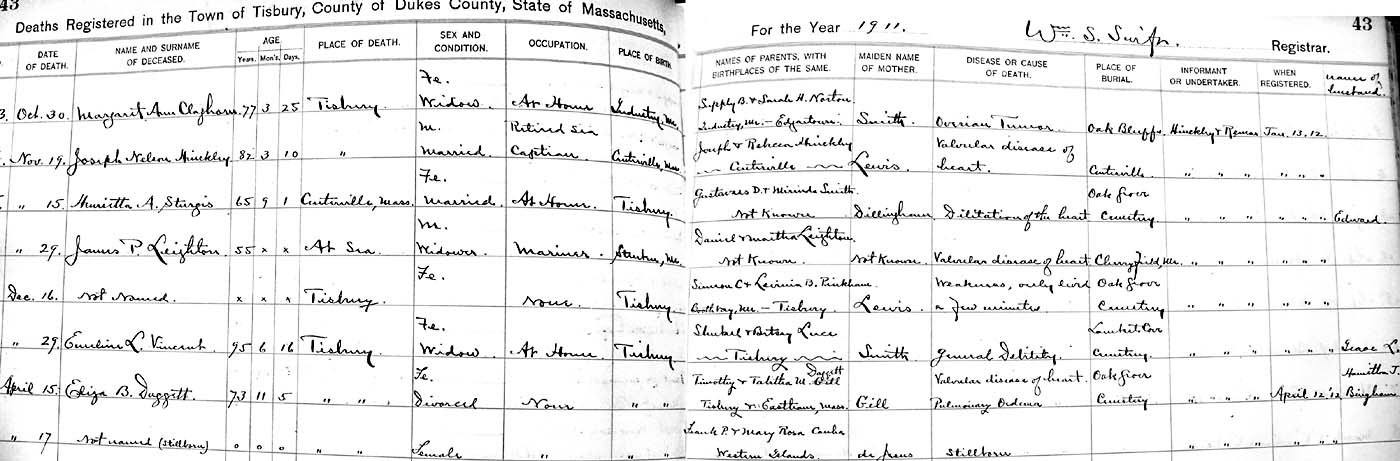 43
Deaths Registered in the Town of Tisbury, County of Dukes County, State of Massachusetts,
For the Year 1911. Wm. S. Swift. Registrar. 43
DATE OF DEATH. NAME AND SURNAME OF DECEASED. AGE. Years. Mon's. Days. PLACE OF DEATH. SEX AND CONDITION. OCCUPATION. PLACE OF BIRTH.
NAMES OF PARENTS, WITH BIRTHPLACES OF THE SAME. MAIDEN NAME OF MOTHER. DISEASE OR CAUSE OF DEATH. PLACE OF BURIAL. INFORMANT OR UNDERTAKER. WHEN REGISTERED. name of husband.
Fe. Supply B. & Sarah H. Norton
3. Oct. 30. Margaret Ann Claghorn. 77 3 25 Tisbury. Widow. At Home Industry, Me. Industry, Me. - Edgartown Smith Ovarian Tumor. Oak Bluffs. Hinckley & Jan. 13, 12.
M. Retired Sea Joseph & Rebecca Hinckley Valvular disease of
Nov. 19. Joseph Nelson Hinckley 82 3 10 " Married. Captian. Centerville, Mass. Centerville Lewis. heart. Centerville. " " " " " "
Fe. Gustavus D. & Mirinda Smith. Oak Grove
" 15. Henrietta A. Sturgis 65 9 1 Centerville, Mass. Married. At Home. Tisbury. Not Known Dillingham Dilitation of the heart Cemetery " " " " " " Edward.
M. Daniel & Martha Leighton.
" 29. James P. Leighton. 55 x x At Sea. Widower. Mariner. Steuben, Me. Not Known. Not Known. Valvular disease of heart Cherryfield, Me. " " " " " "
Fe. Simeon C. & Lavinia B. Pinkham. Weakness, only lived Oak Grove
Dec. 16. Not Named. x x x Tisbury. None. Tisbury. Boothbay, Me. - Tisbury. Lewis. a few minutes Cemetery " " " " " "
Fe. Shubael & Betsey Luce Lambert Cove
" 29. Emeline L. Vincent 95 6 16 Tisbury. Widow. At Home. Tisbury Tisbury Smith General Debility. Cemetery. " " " " " " Isaac L.
Fe. Timothy & Tabitha M. Daggett Gill Valvular disease of heart. Oak Grove Hamilton J.
April 15. Eliza B. Daggett. 73 11 5 " " Divorced None " " Tisbury & Eastham, Mass. Gill Pulmonary Oedema Cemetery " " " April 12 '12 Bingham
Frank P. & Mary Rosa
" 17 Not named (Stillborn) 0 0 0 " " Female " " " Western Islands. de Jesus Stillborn " " " " " "